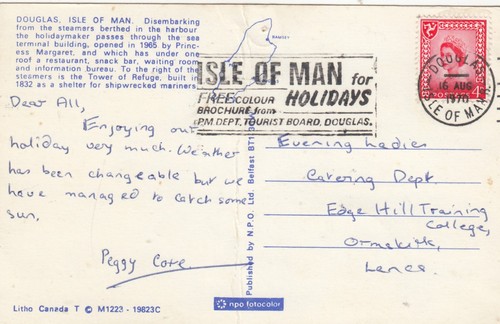 DOUGLAS, ISLE OF MAN. Disembarking
from the steamers berthed in the harbour
the holidaymaker passes through the sea
terminal building, opened in 1965 by Prin-
cess Margaret, and which has under one
roof a restaurant, snack bar, waiting room
and information bureau. To the right of the
steamers is the Tower of Refuge, built in
1832 as a shelter for shipwrecked mariners.
RAMSEY
ISLE OF MAN for
HOLIDAYS
FREE COLOUR
BROCHURE from
PM DEPT, TOURIST BOARD, DOUGLAS.
DOUGLAS
16 AUG
1970
ISLE OF MAN
4D
Dear All,
Enjoying our
holiday very much. Weather
has been changeable but we
have managed to catch some
sun,
Peggy Core
Evening Ladies
Catering Dept.
Edge Hill Training
College,
Ormskirk,
Lancs.
Published by N.P.O. Ltd. Belfast BT1
Litho Canada T © M1223 - 19823C
npo fotocolor